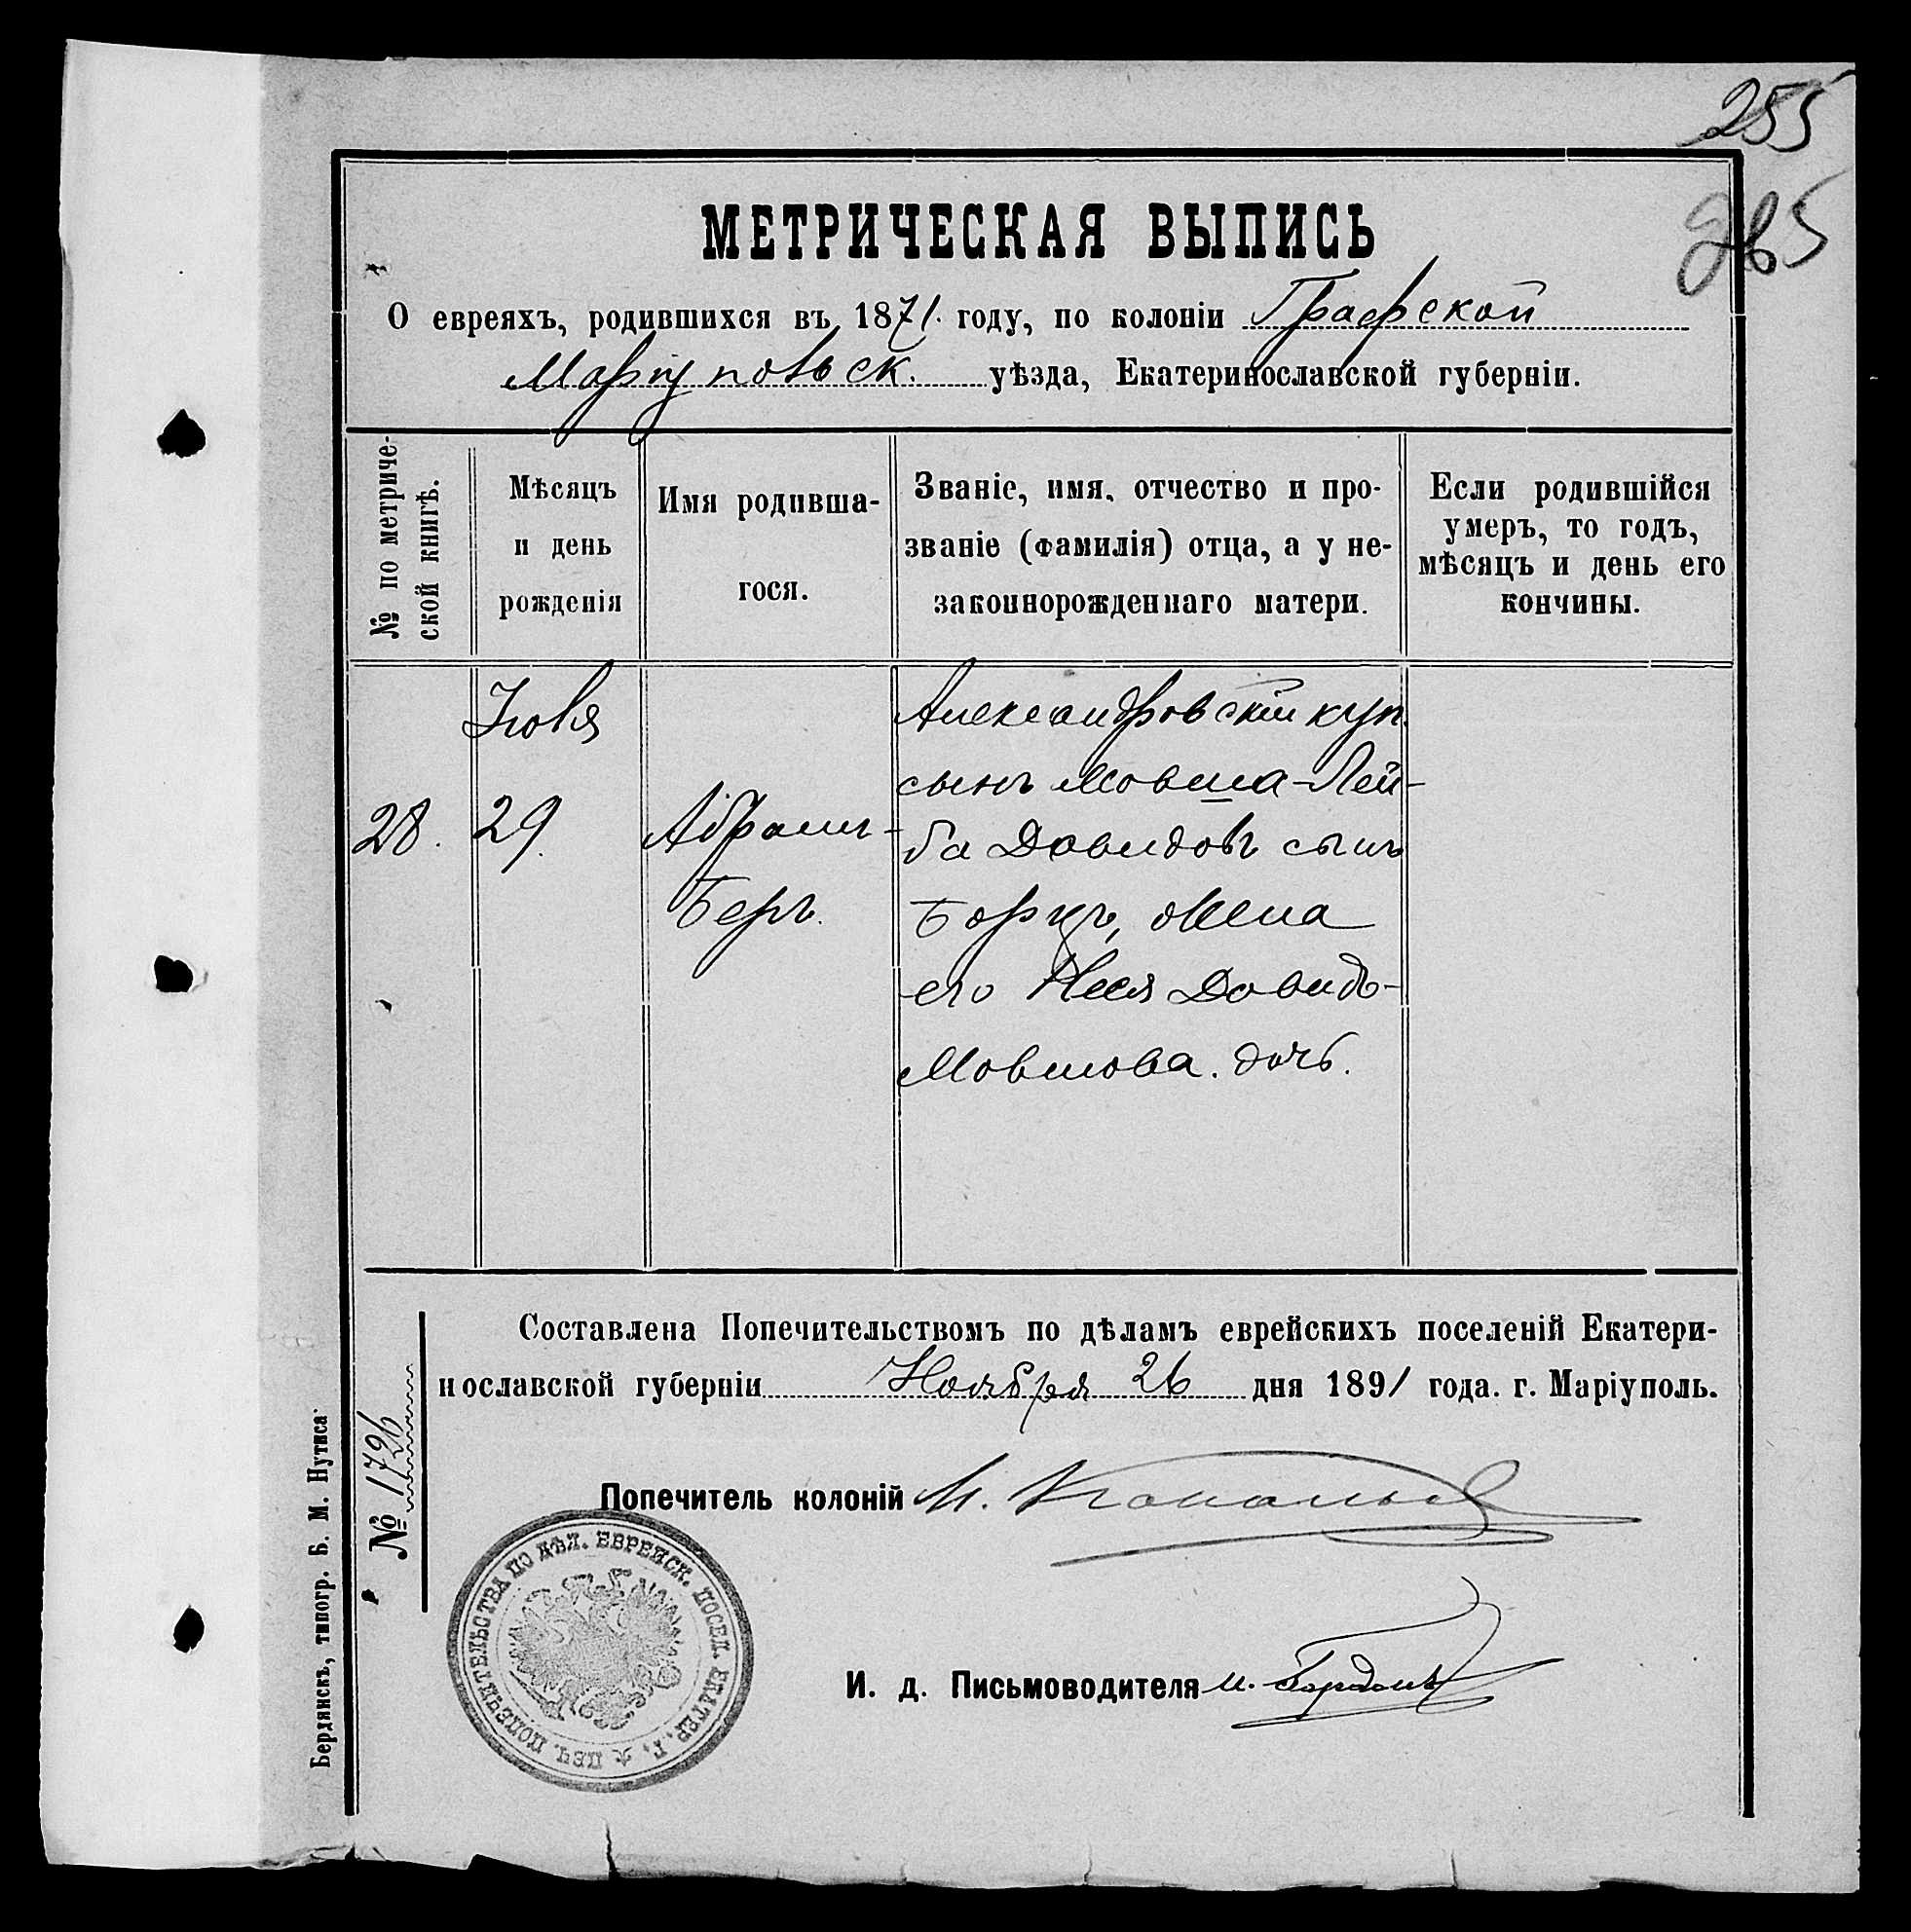 255
МЕТРИЧЕСКАЯ ВЫПИСЬ
О евреяхъ, родившихся въ 1871. году, по колоніи Графской
Маріупольск. уѣзда, Екатеринославской губерніи.
№ по метриче-
ской книгѣ.
Мѣсяцъ
и день
рожденія
Имя родивша-
гося.
Званіе, имя, отчество и про-
званіе (фамилія) отца, а у не-
законнорожденнаго матери.
Если родившійся
умеръ, то годъ,
мѣсяцъ и день его
кончины.
28.
29.
Абрамъ-
Беръ.
Александровскій куп.
сынъ Мовша-Лей-
ба Давидовъ сынъ
жена
его Давидъ-
Мовшова. дочь.
Составлена Попечительствомъ по дѣламъ еврейскихъ поселеній Екатери-
нославской губерніи Ноября 26 дня 1891 года. г. Маріуполь.
№ 1726
Попечитель колоній
И. д. Письмоводителя И. Гордонъ
ПЕЧ. ПОПЕЧИТЕЛЬСТВА ПО ДѢЛ. ЕВРЕЙСК. ПОСЕЛ. ЕКАТЕР. Г.
Бердянскъ, типогр. Б. М. Нутиса.